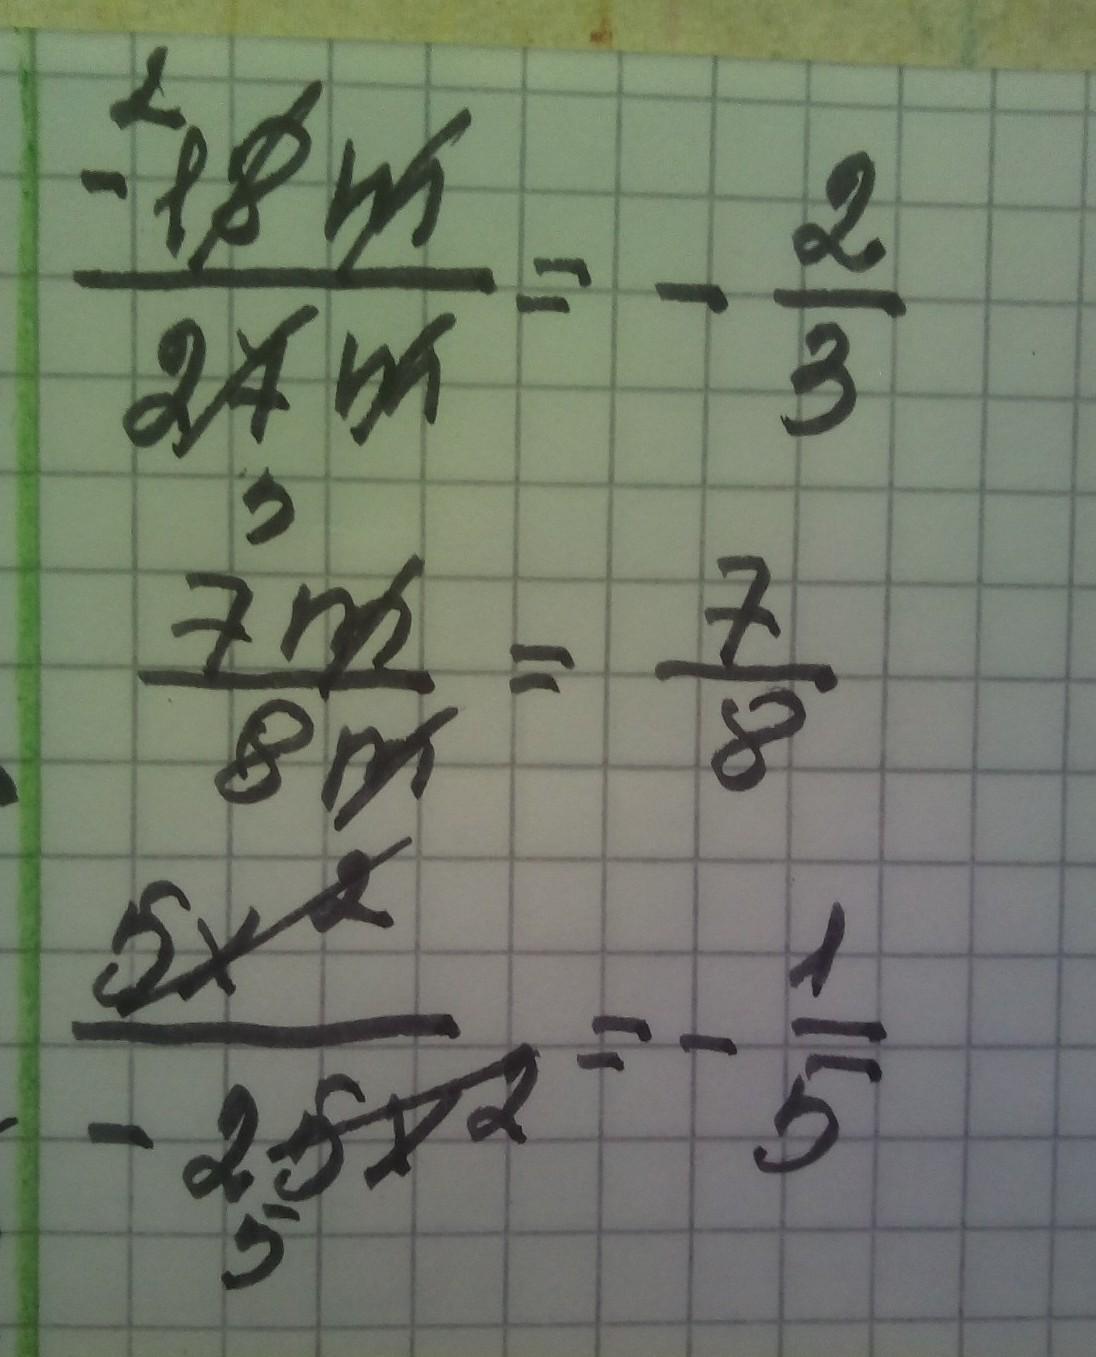 2
-18m/27m = -2/3
3
7m/8m = 7/8
5x2/-25x2 = -1/5
5